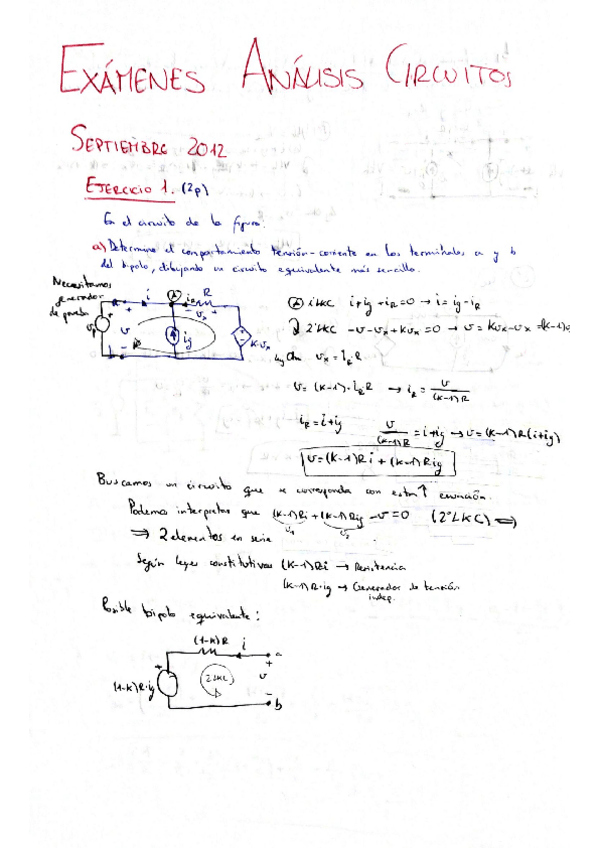 EXÁMENES ANÁLISIS CIRCUITOS
SEPTIEMBRE 2012
EJERCICIO 1. (2p)
En el circuito de la figura:
a) Determine el comportamiento tensión-corriente en los terminales a y b
del bipolo, dibujando un circuito equivalente más sencillo.
Necesitamos
generador
de prueba
i
A
R
a
v
ig
K·vx
b
i + ig + iR = 0 → i = ig - iR
2ºLKC -v - vx + Kvx = 0 → v = Kvx - vx = (K-1)
vx = iR·R
v = (K-1)·iR·R → iR = v/(K-1)R
iR = i + ig
v/(K-1)R = i + ig → v = (K-1)R(i+ig)
v = (K-1)Ri + (K-1)Rig
Buscamos un circuito que se corresponda con esta ↑ ecuación.
Podemos interpretar que (K-1)Ri + (K-1)Rig - v = 0 (2ºLKC) ⟹
v1 v2
⟹ 2 elementos en serie
Según leyes constitutivas (K-1)Ri → Resistencia
(K-1)R·ig → Generador de tensión
indep.
Posible bipolo equivalente:
(1-K)R
i
a
+
(1-K)R·ig
2LKC
v
-
b